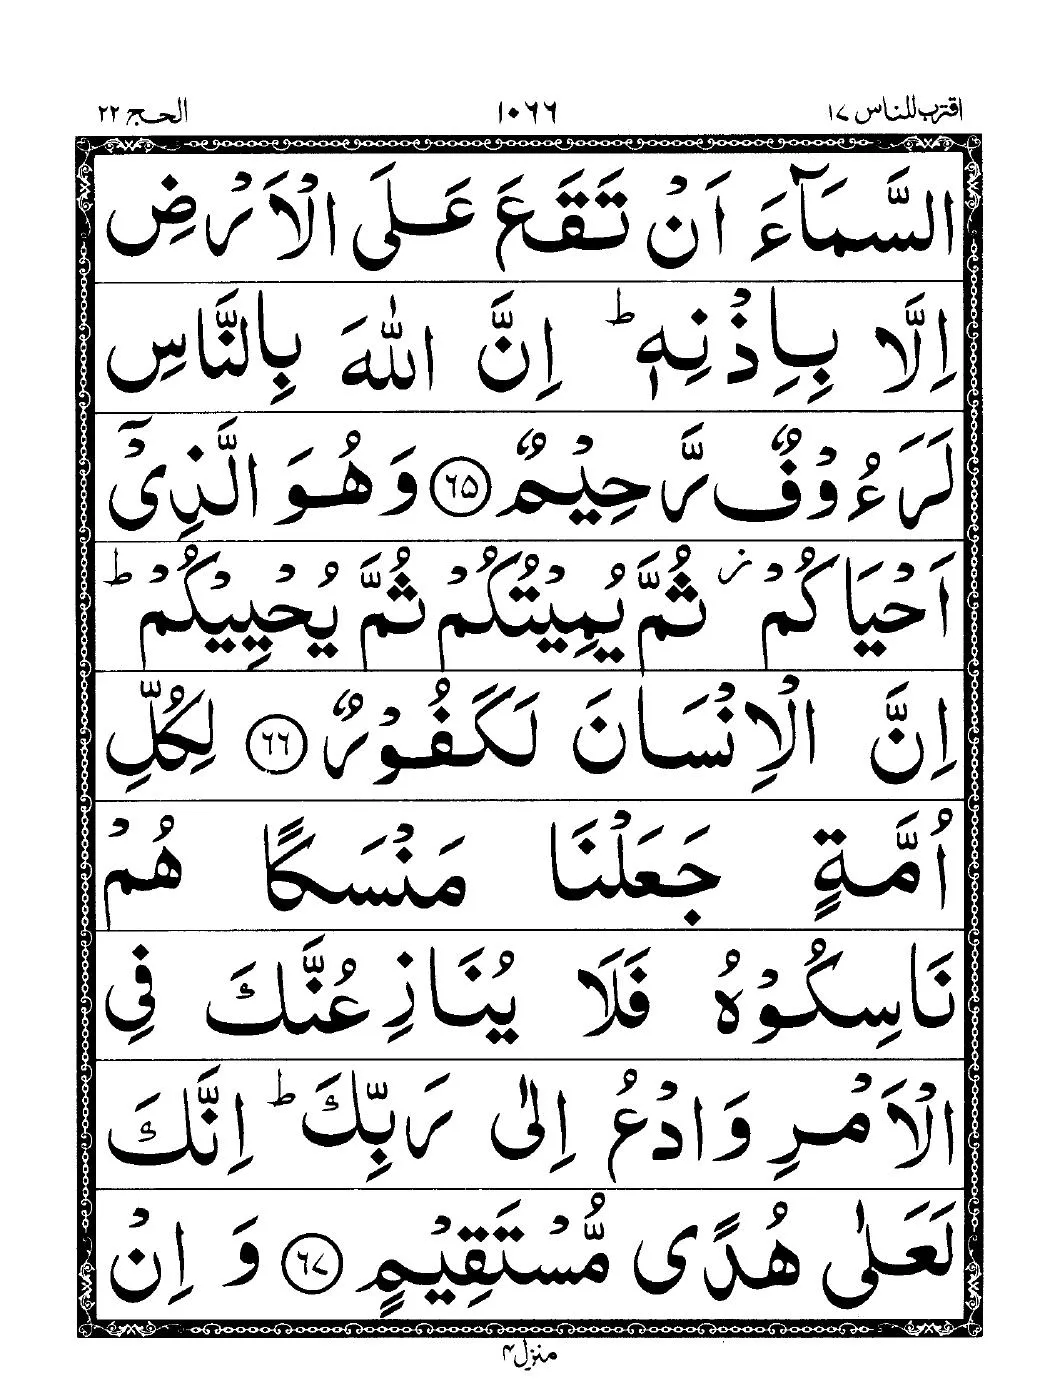 اقترب للناس ١٧ ١٠٦٦ الحج ٢٢
السَّمَآءَ اَنْ تَقَعَ عَلَى الْاَرْضِ
اِلَّا بِاِذْنِهٖ ؕ اِنَّ اللّٰهَ بِالنَّاسِ
لَرَءُوْفٌ رَّحِیْمٌ ﴿٦٥﴾ وَ هُوَ الَّذِیْۤ
اَحْیَاكُمْ ؗ ثُمَّ یُمِیْتُكُمْ ثُمَّ یُحْیِیْكُمْ ؕ
اِنَّ الْاِنْسَانَ لَكَفُوْرٌ ﴿٦٦﴾ لِكُلِّ
اُمَّةٍ جَعَلْنَا مَنْسَكًا هُمْ
نَاسِكُوْهُ فَلَا یُنَازِعُنَّكَ فِی
الْاَمْرِ وَادْعُ اِلٰى رَبِّكَ ؕ اِنَّكَ
لَعَلٰى هُدًى مُّسْتَقِیْمٍ ﴿٦٧﴾ وَ اِنْ
منزل ۴